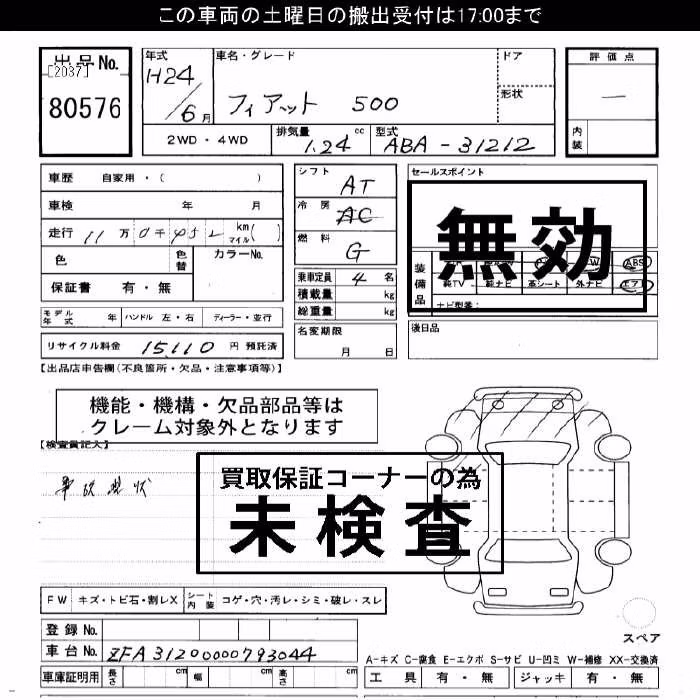 この車両の土曜日の搬出受付は17:00まで
出品No.
[2037]
80576
年式
H24/6月
車名・グレード
フィアット 500
ドア
形状
評価点
—
内装
2WD・4WD
排気量 1.24 cc
型式 ABA-31212
車歴 自家用・( )
車検 年 月
走行 11万0千452 km マイル( )
色 色替 カラーNo.
保証書 有・無
モデル年式 年 ハンドル 左・右 ディーラー・並行
リサイクル料金 15,110 円 預託済
シフト AT
冷房 AC
燃料 G
乗車定員 4 名
積載量 kg
総重量 kg
名変期限
月 日
セールスポイント
無効
装備品
ABS
純TV 純ナビ 革シート 外ナビ エア
ナビ型番:
後日品
【出品店申告欄(不良箇所・欠品・注意事項等)】
機能・機構・欠品部品等は
クレーム対象外となります
【検査員記入】
事故現状
買取保証コーナーの為
未検査
FW キズ・トビ石・割レX シート内装 コゲ・穴・汚レ・シミ・破レ・スレ
登録No.
車台No. ZFA31200000793044
車庫証明用 長さ cm 幅 cm 高さ cm
スペア
A-キズ C-腐食 E-エクボ S-サビ U-凹ミ W-補修 XX-交換済
工具 有・無 ジャッキ 有・無